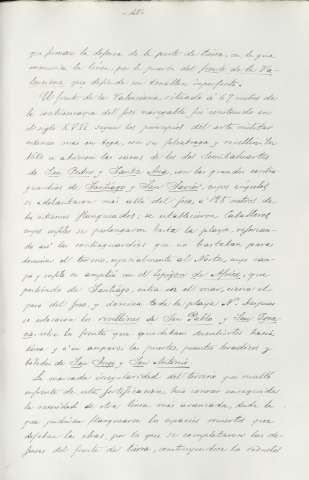 - 48 -
que forman la defensa de la puerta de tierra, en la que
el frente de la Va-
lenciana, que defiende un revellin imperfecto.
El frente de la Valenciana, situado a 67 metros de
la contraescarpa del foso navegable fué construido en
el siglo XVII segun los principios del arte militar
entonces mas en boga, con su
de los dos semibaluartes
de San Pedro y Santa Ana, con las grandes contra
guardias de Santiago y San Javier, cuyos angulos
se adelantaron mas allá del foso, a 128 metros de
los extremos flanqueados, se establecieron Caballeros
cuyos se prolongaron hasta la playa, reforzan-
do asi las contraguardias que no bastaban para
dominar el terreno, especialmente al Norte, cuyo cam-
po y se amplia en el Espigon de Africa, que
partiendo de Santiago, entra en el mar, cierra el
paso del foso, y domina toda la playa N. Despues
se colocaron los revellines de San Pablo y San Igna
cio entre los frentes que quedaban descubiertos hacia
tierra y a su amparo las puertas, puentes levadizos y
de San Jorge y San Antonio.
La marcada irregularidad del terreno que resultó
enfrente de esta fortificacion, hizo conocer enseguida
la necesidad de otra linea mas avanzada, desde la
que pudieran flanquearse los espacios muertos que
dejaban las obras, por lo que se completaron las de-
fensas del frente de tierra, construyendose la